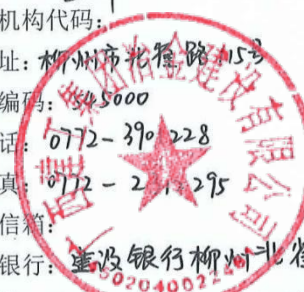 机构代码：
址：柳州市北雀路115号
编码：545000
话：0772-390 228
真：0772-2 295
信箱：
银行：建设银行柳州北雀
广西建工集团冶金建设有限公司